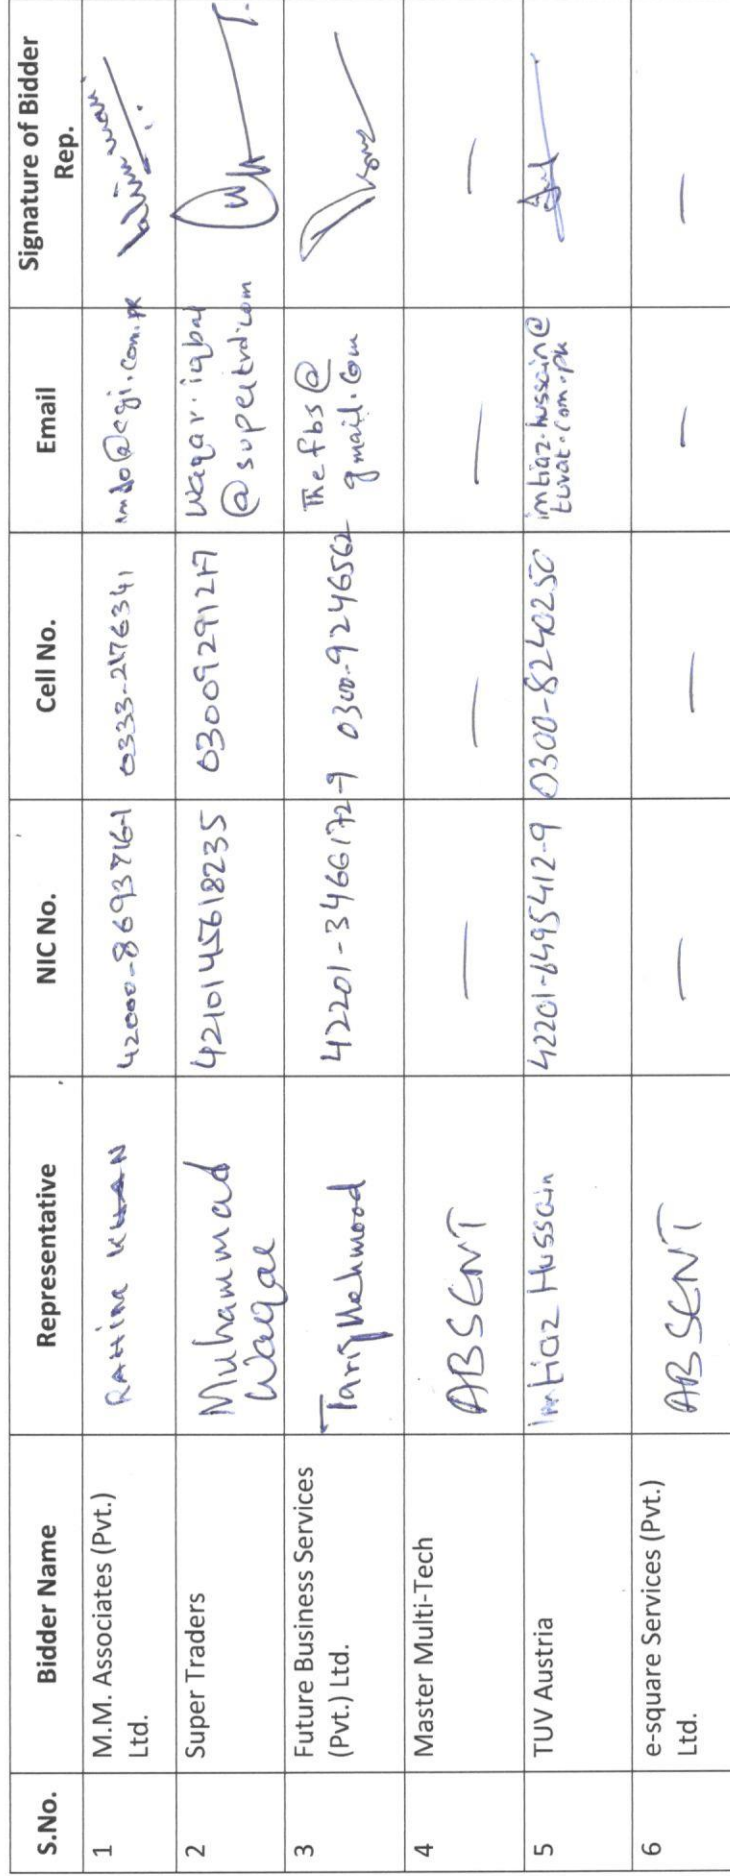 S.No.
Bidder Name
Representative
NIC No.
Cell No.
Email
Signature of Bidder
Rep.
1
M.M. Associates (Pvt.)
Ltd.
RAHIM KHAN
0333-2176341
2
Super Traders
Muhammad
Waqar
4210145618235
03009291217
waqar.iqbal
@supertrd.com
3
Future Business Services
(Pvt.) Ltd.
Tariq Mehmood
42201-3466172-9
0300-9246562
The fbs@
gmail.com
4
Master Multi-Tech
ABSENT
—
—
—
—
5
TUV Austria
Imtiaz Hussain
42201-6495412-9
0300-8240250
imtiaz.hussain@
tuvat.com.pk
6
e-square Services (Pvt.)
Ltd.
ABSENT
—
—
—
—